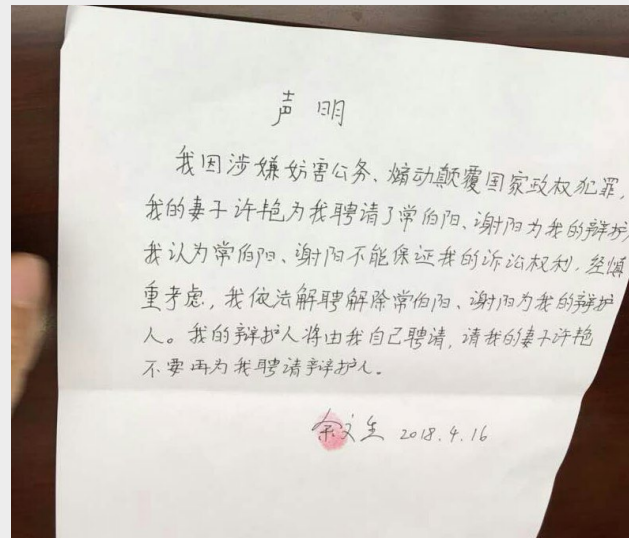 声 明
我因涉嫌妨害公务、煽动颠覆国家政权犯罪，
我的妻子许艳为我聘请了常伯阳、谢阳为我的辩护
我认为常伯阳、谢阳不能保证我的诉讼权利，经慎
重考虑，我依法解聘解除常伯阳、谢阳为我的辩护
人。我的辩护人将由我自己聘请，请我的妻子许艳
不要再为我聘请辩护人。
余文生 2018.4.16